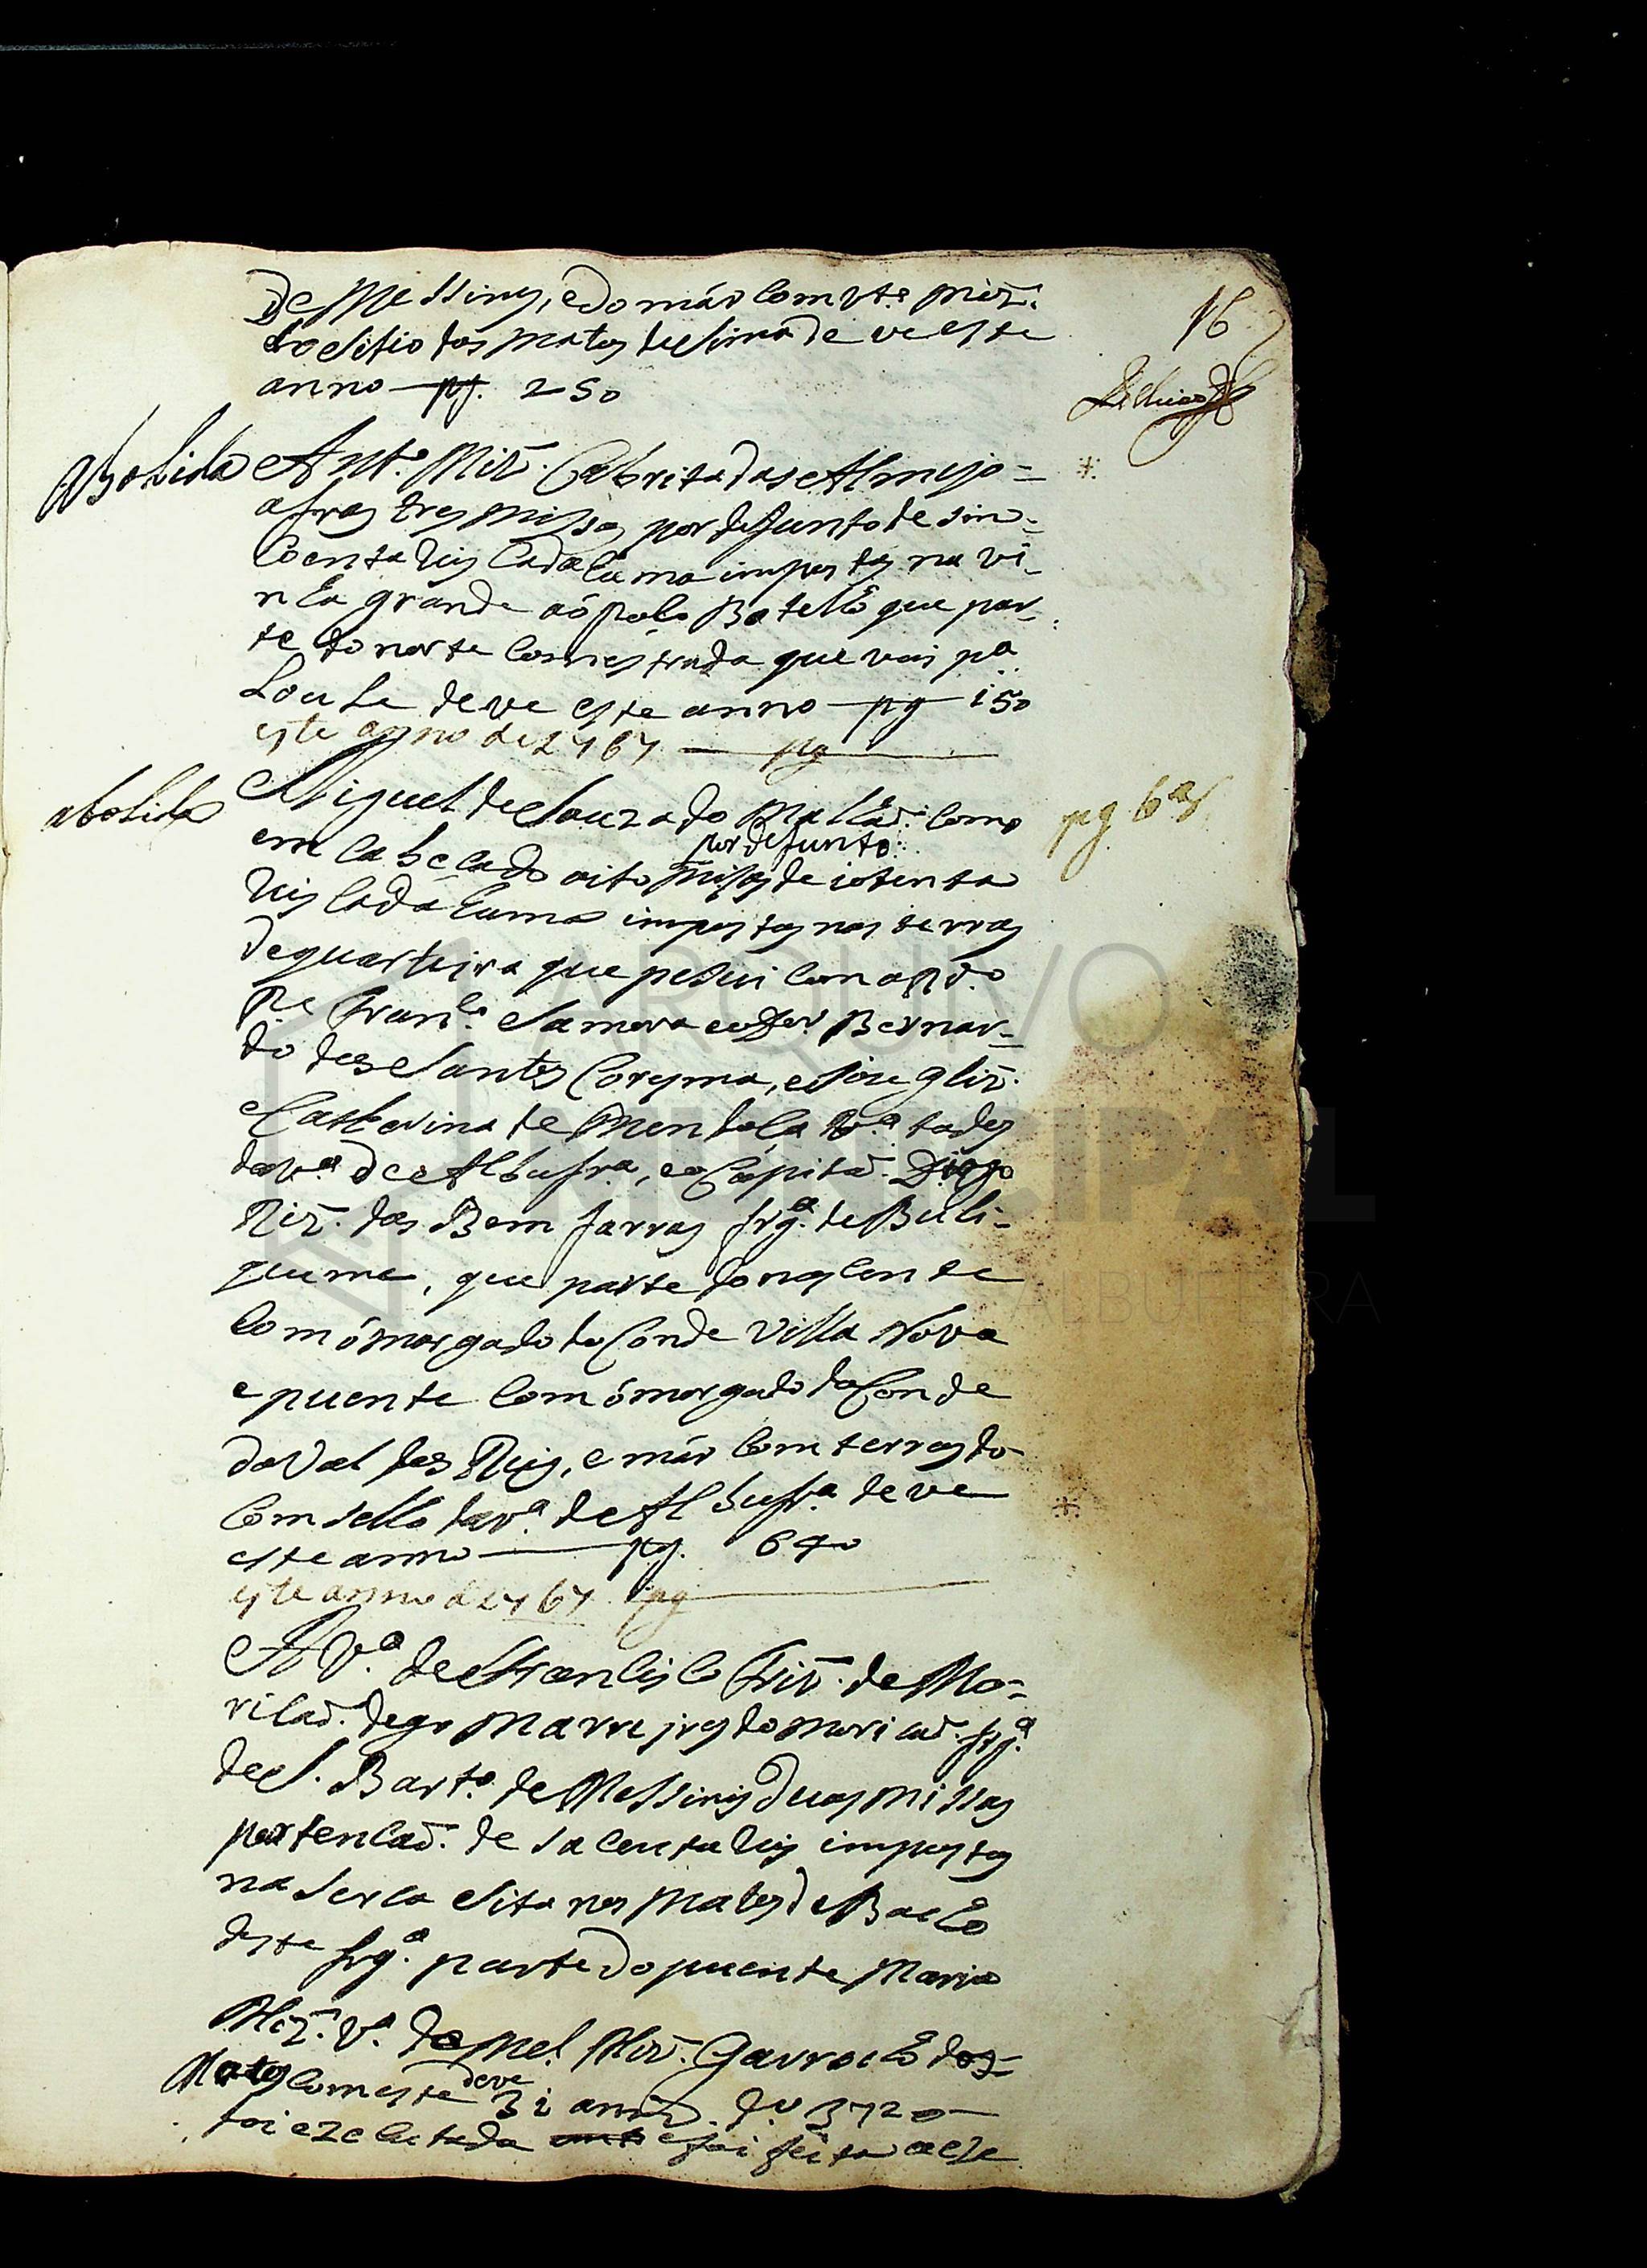 16
De Messines, e do már com vta. Miz.
do Sitio dos matos de sima deve este
anno pg. 250
Abolida Antº. Miz. Cabrita das Almejo=
afras tres missas por defunto de sin=
Coenta Reis Cada huma impostas na vi=
nha grande aó polo Botelho que par=
te do norte Com estrada que vai pª
Loule deve este anno pg 150
este anno de 1767 pg
abolida Miguel de Souza do Malhad. Como *
em Cabecado oito missas de oitenta
por defunto
Reis Cada huma impostas nas terras
de quarteira que pesui Com o Rdo
Pe Franco. Samora e o Dor. Bernar=
do dos Santos Coresma, e Jose Gliz.
Catherina de Mendoça Vª. todos
da vª. de Albufrª., e o Cápitaõ. Diogo
Niz. dos Bem farras frgª. de Buli=
queime, que parte do nasente
Com ó morgado do Conde Villa Nova
e puente Com ó morgado do Conde
do Val dos Reis, e már Com terras do
Comselho da vª. de Albufrª. deve *
este anno pg. 640
este anno de 1767 pg
A Vª. de Francisco Friz. de Mo=
ricaõ. digo Marreiros do moricaõ. frgª.
de S. Bartº. de Messines duas missas
por tencaõ. de sacenta Reis impostas
na Serca Sita nos Matos de Bacho
desta frgª. parte do puente Maria
Miz. Vª. de Mel. Miz. Garrocho dos
Matos Com este deve 31 annos. do 3720
foi ezecutada e foi feita a esc
pg. 6as